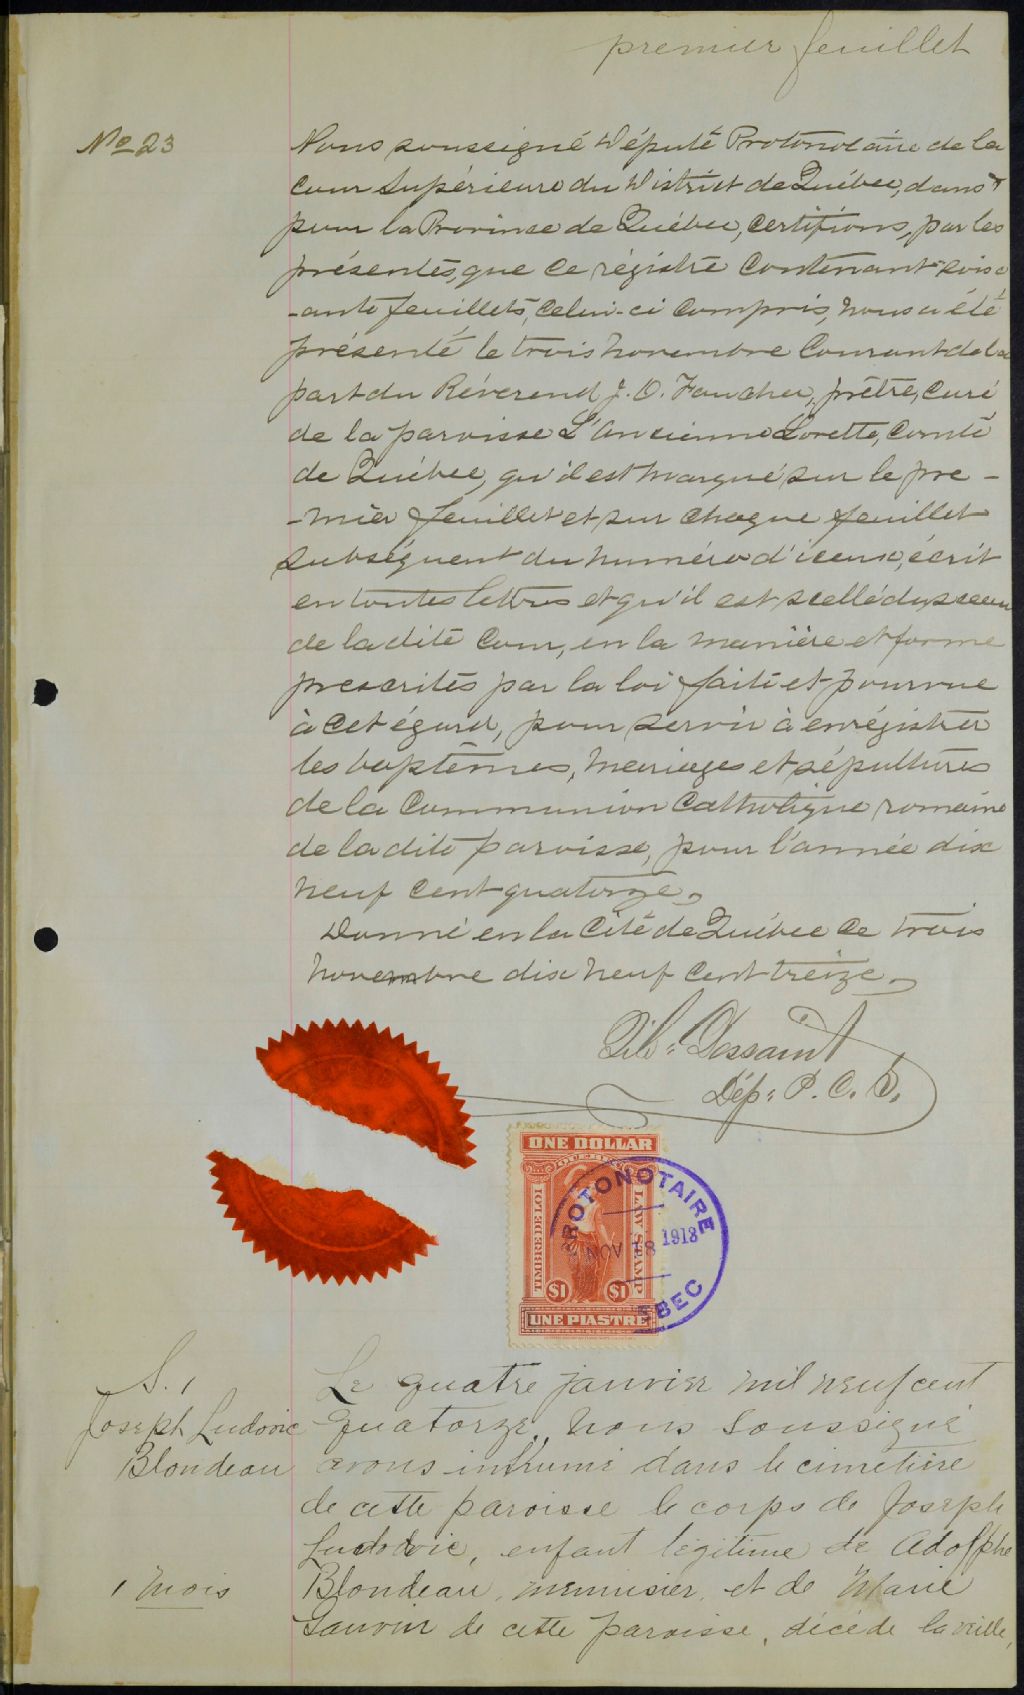 premier feuillet
No 23
Nous soussigné Député Protonotaire de la
Cour Supérieure du District de Québec, dans &
pour la Province de Québec, certifions, par les
présentes, que ce régistre contenant soix
-ante feuillets, celui-ci compris, nous a été
présenté le trois novembre courant de la
part du Révérend J. O. Faucher, prêtre, curé
de la paroisse L'Ancienne Lorette, Comté
de Québec, qu'il est marqué sur le pre-
-mier feuillet et sur chaque feuillet
subséquent du numéro d'iceux, écrit
en toutes lettres et qu'il est scellé du sceau
de la dite Cour, en la manière et forme
prescrites par la loi faite et pourvue
à cet égard, pour servir à enrégistrer
les baptêmes, mariages et sépultures
de la Communion Catholique romaine
de la dite paroisse, pour l'année dix
neuf cent quatorze.
Donné en la Cité de Québec ce trois
novembre dix neuf cent treize.
Dessaint
Dép. P. C. S.
ONE DOLLAR
QUEBEC
TIMBRE DE LOI
LAW STAMP
$1 $1
UNE PIASTRE
PROTONOTAIRE
NOV 18 1913
EBEC
S. 1
Joseph Ludovic
Blondeau
1 mois
Le quatre janvier mil neuf cent
quatorze, nous soussigné
avons inhumé dans le cimetière
de cette paroisse le corps de Joseph
Ludovic, enfant légitime de Adolphe
Blondeau, menuisier, et de Marie
Gauvin de cette paroisse, décédé la veille,